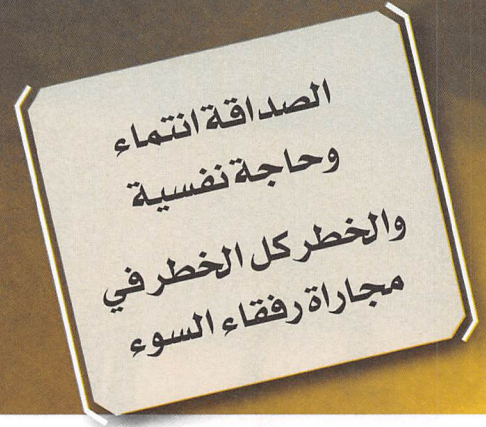 الصداقة انتماء
وحاجة نفسية
والخطر كل الخطر في
مجاراة رفقاء السوء